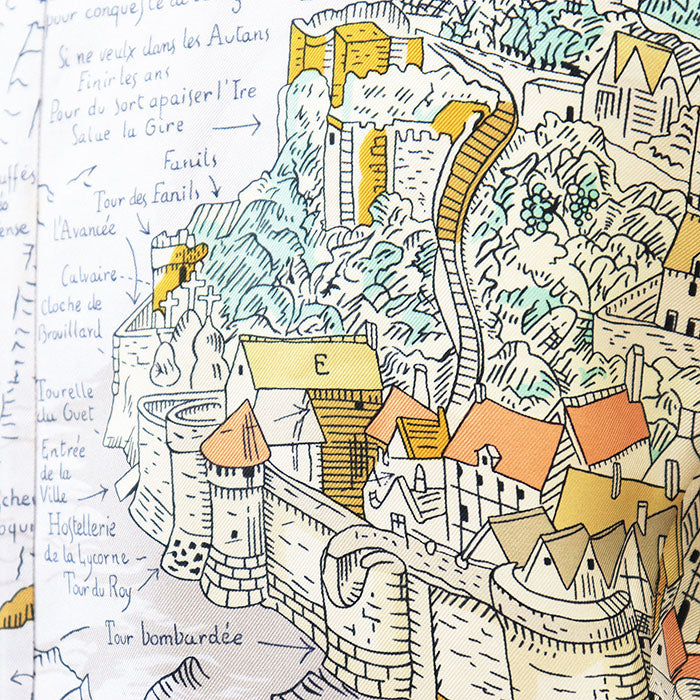 pour conqueste
Si ne veulx dans les Autans
Finir les ans
Pour du sort apaiser l'Ire
Salue la Gire
Fanils
Tour des Fanils
l'Avancée
Calvaire
cloche de
Brouillard
Tourelle
du Guet
Entrée
de la
Ville
Hostellerie
de la Lycorne
Tour du Roy
Tour bombardée
E